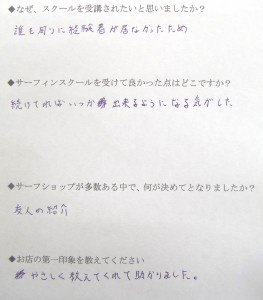 ◆なぜ、スクールを受講されたいと思いましたか?
誰も周りに経験者が居なかったため
◆サーフィンスクールを受けて良かった点はどこですか?
続けてればいつか出来るようになる気がした
◆サーフショップが多数ある中で、何が決めてとなりましたか?
友人の紹介
◆お店の第一印象を教えてください
やさしく教えてくれて助かりました。